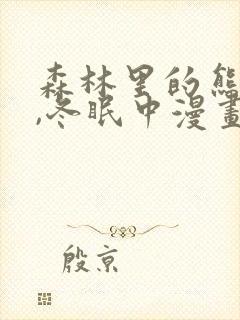 森林里的熊
,冬眠中漫畫
殷京